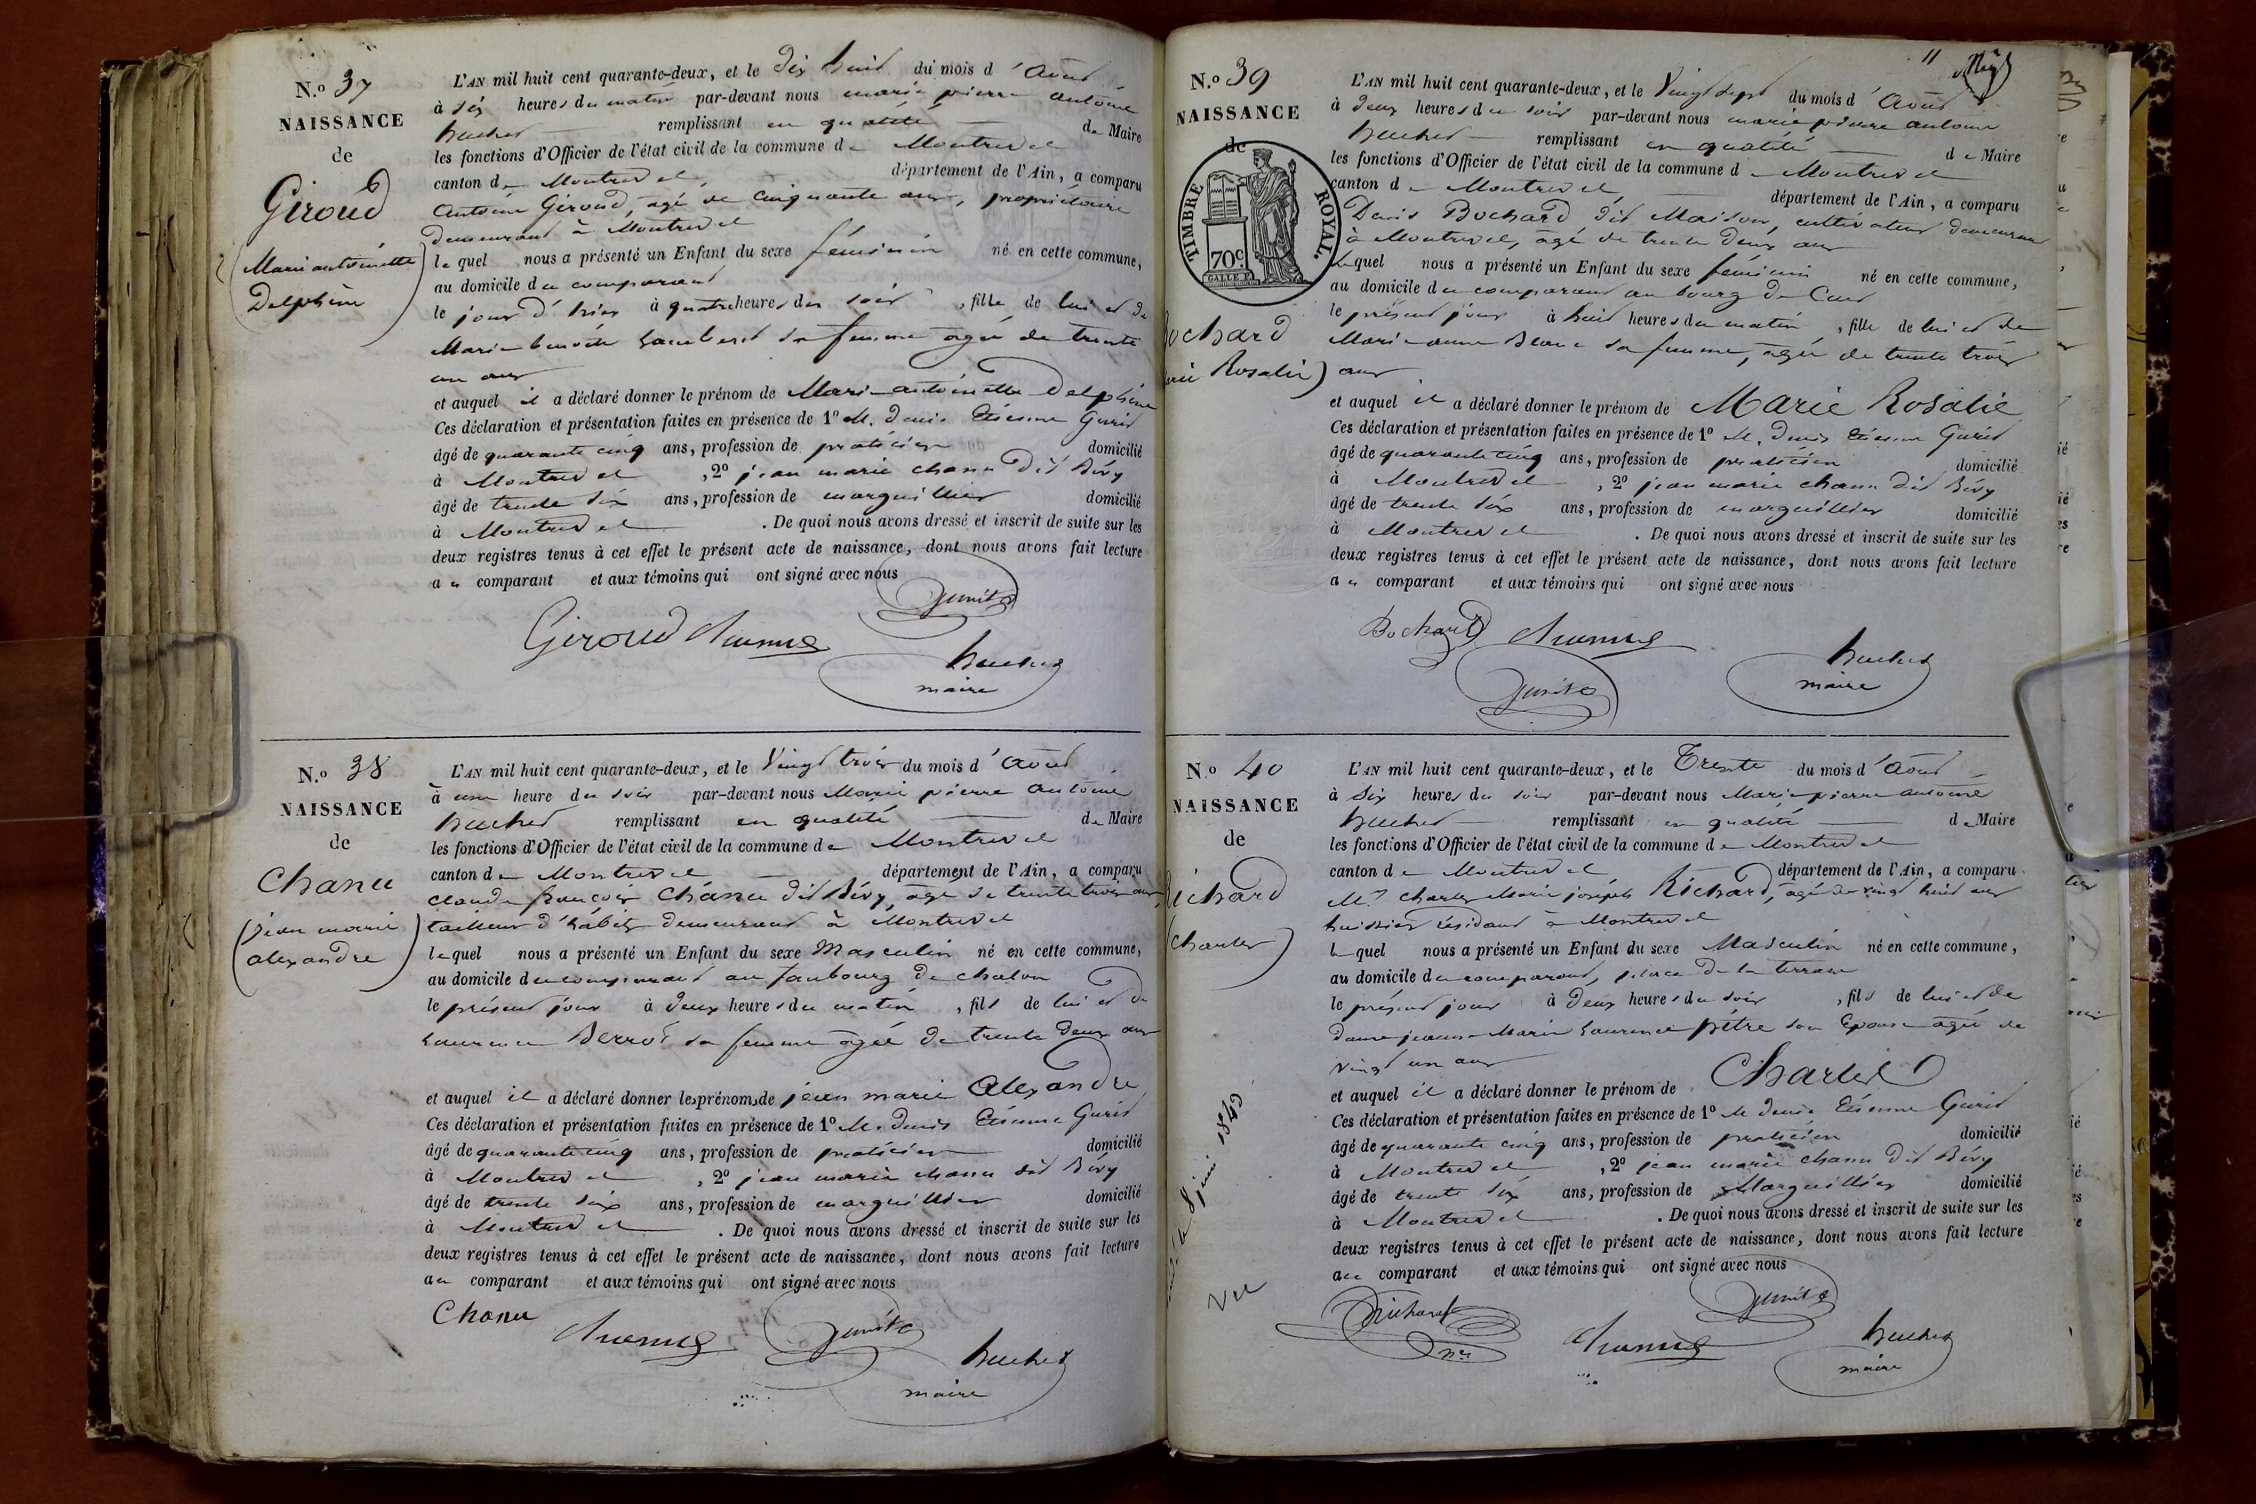 N.o 37
NAISSANCE
de
Giroud
(Marie antoinette
Delphine)
L'AN mil huit cent quarante-deux, et le dix huit du mois d'août
à six heures du matin par-devant nous marie pierre antoine
huchet remplissant en qualité de Maire
les fonctions d'Officier de l'état civil de la commune de Montrevel
canton de Montrevel département de l'Ain, a comparu
Antoine Giroud, agé de cinquante ans, propriétaire
demeurant à Montrevel
lequel nous a présenté un Enfant du sexe féminin né en cette commune,
au domicile du comparant
le jour d'hier à quatre heures du soir, fille de lui et de
Marie benoite sa femme agée de trente
un ans
et auquel il a déclaré donner le prénom de Marie antoinette Delphine
Ces déclaration et présentation faites en présence de 1o M. Denis Etienne
âgé de quarante cinq ans, profession de praticien domicilié
à Montrevel, 2o jean marie chanu dit Bévy
âgé de trente six ans, profession de marguillier domicilié
à Montrevel. De quoi nous avons dressé et inscrit de suite sur les
deux registres tenus à cet effet le présent acte de naissance, dont nous avons fait lecture
au comparant et aux témoins qui ont signé avec nous
Giroud
huchet
maire
N.o 38
NAISSANCE
de
Chanu
(jean marie
alexandre)
L'AN mil huit cent quarante-deux, et le Vingt trois du mois d'août
à une heure du soir par-devant nous Marie pierre antoine
huchet remplissant en qualité de Maire
les fonctions d'Officier de l'état civil de la commune de Montrevel
canton de Montrevel département de l'Ain, a comparu
claude françois Chanu dit Bévy, agé de trente trois ans,
tailleur d'habits demeurant à Montrevel
lequel nous a présenté un Enfant du sexe Masculin né en cette commune,
au domicile du comparant au faubourg de chalon
le présent jour à deux heures du matin, fils de lui et de
Laurence Berrod sa femme agée de trente deux ans
et auquel il a déclaré donner les prénoms de jean marie Alexandre
Ces déclaration et présentation faites en présence de 1o M. Denis Etienne
âgé de quarante cinq ans, profession de praticien domicilié
à Montrevel, 2o jean marie chanu dit Bévy
âgé de trente six ans, profession de marguillier domicilié
à Montrevel. De quoi nous avons dressé et inscrit de suite sur les
deux registres tenus à cet effet le présent acte de naissance, dont nous avons fait lecture
au comparant et aux témoins qui ont signé avec nous
Chanu
huchet
maire
11
N.o 39
NAISSANCE
de
TIMBRE ROYAL.
70c.
GALLE F.
Bochard
Rosalie)
L'AN mil huit cent quarante-deux, et le Vingt sept du mois d'Août
à deux heures du soir par-devant nous marie pierre antoine
huchet remplissant en qualité de Maire
les fonctions d'Officier de l'état civil de la commune de Montrevel
canton de Montrevel département de l'Ain, a comparu
Denis Bochard dit Maison, cultivateur demeurant
à Montrevel, âgé de trente deux ans
Lequel nous a présenté un Enfant du sexe féminin né en cette commune,
au domicile du comparant au bourg de Cuet
le présent jour à huit heures du matin, fille de lui et de
Marie anne Blanc sa femme, agée de trente trois
ans
et auquel il a déclaré donner le prénom de Marie Rosalie
Ces déclaration et présentation faites en présence de 1o M. Denis Etienne
âgé de quarante cinq ans, profession de praticien domicilié
à Montrevel, 2o jean marie chanu dit Bévy
âgé de trente six ans, profession de marguillier domicilié
à Montrevel. De quoi nous avons dressé et inscrit de suite sur les
deux registres tenus à cet effet le présent acte de naissance, dont nous avons fait lecture
au comparant et aux témoins qui ont signé avec nous
Bochard
huchet
maire
N.o 40
NAISSANCE
de
Richard
(Charles)
8 juin 1849
Vu
L'AN mil huit cent quarante-deux, et le Trente du mois d'août
à six heures du soir par-devant nous Marie pierre antoine
huchet remplissant en qualité de Maire
les fonctions d'Officier de l'état civil de la commune de Montrevel
canton de Montrevel département de l'Ain, a comparu
Mr Charles Marie joseph Richard, agé de vingt huit ans
huissier résidant à Montrevel
lequel nous a présenté un Enfant du sexe Masculin né en cette commune,
au domicile du comparant, place de la terrasse
le présent jour à deux heures du soir, fils de lui et de
dame jeanne Marie Laurence pêtre son Epouse agée de
vingt un ans
et auquel il a déclaré donner le prénom de Charles
Ces déclaration et présentation faites en présence de 1o M. Denis Etienne
âgé de quarante cinq ans, profession de praticien domicilié
à Montrevel, 2o jean marie chanu dit Bévy
âgé de trente six ans, profession de Marguillier domicilié
à Montrevel. De quoi nous avons dressé et inscrit de suite sur les
deux registres tenus à cet effet le présent acte de naissance, dont nous avons fait lecture
au comparant et aux témoins qui ont signé avec nous
Richard
huchet
maire